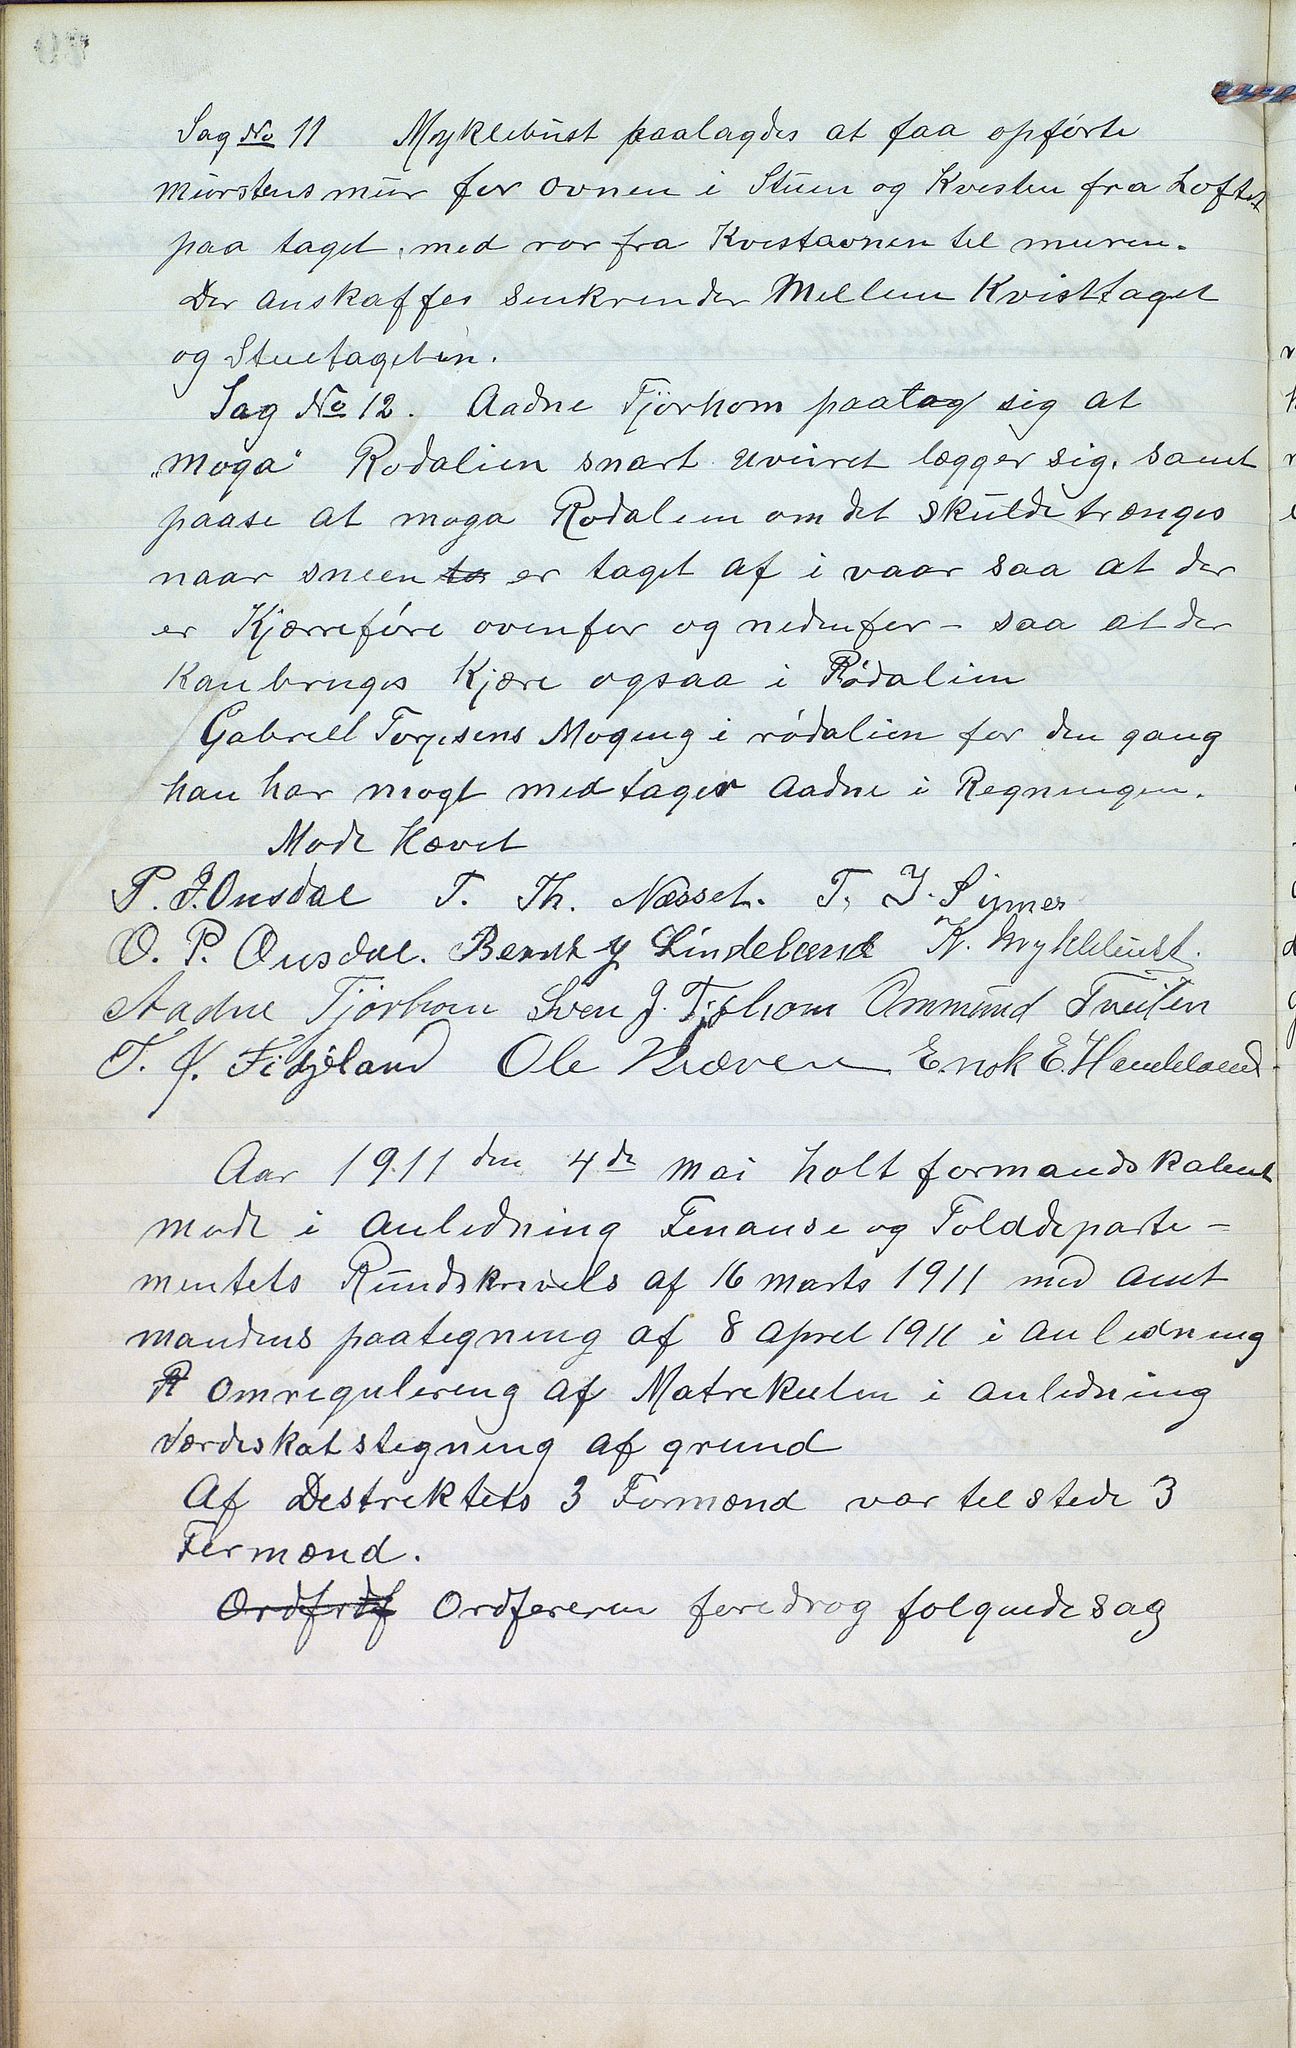 Sag No 11 Myklebust paalagdes at faa opförte
murstensmur for ovnen i Stuen og Kvesten fra Loftet
paa taget, med rør fra Kvestaonen til muren.
Der anskaffes senkrender Mellem Kvisttaget
og Stuetaget.
Sag No 12. Aadne Tjörhom paatog sig at
"moga" Rodalien snart uveiret lægger sig. samt
paase at moga Rodalien om det skulde trænges
naar sneen to er taget af i vaar saa at der
er Kjærreföre ovenfor og nedenfor - saa at der
kan bruges Kjære ogsaa i Rödalien
Gabrell Torjesens Moging i rödalien for den gang
han har mogt medtager Aadne i Regningen.
Møde Hævet
P. J. Ousdal T. Th. Næsset. T. J. Sinnes
O. P. Ousdal. Berndt Y Lindeland K. Myklebust.
Aadne Tjörhom Sven J. Tjorhom Ommund Tveiten
T. K. Fidjeland Ole Kvæven Enok E. Handeland.
Aar 1911 den 4de mai holt formandskabet
møde i Anledning Finanse og Tolddeparte-
mentets Rundskrivels af 16 marts 1911 med amt
mandens paategning af 8 april 1911 i anledning
R omregulereng af Matrekulen i anledning
værdeskatstegning af grund
Af Destrektets 3 Formænd var telstede 3
Formænd.
Ordfrdf Ordføreren foredrog følgende sag